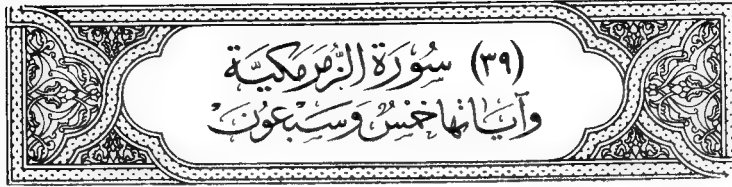 (٣٩) سُورَةُ الزُّمَرِ مَكيَّة
وَآيَاتُهَا خَمْسٌ وَسَبْعُونَ